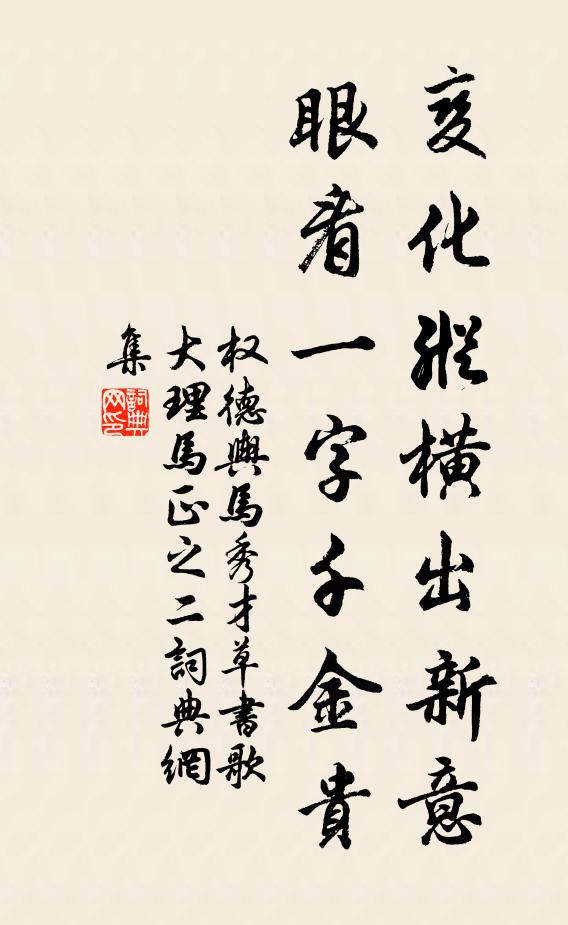 变化纵橫出新意
眼看一字千金貴
权德輿馬秀才草書歌
大理馬正之二詞典網
集
詞典
网印